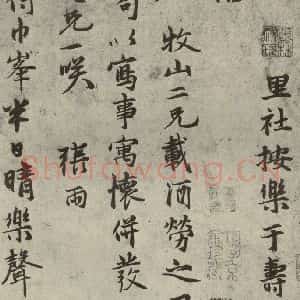 里社按樂于壽
牧山二兄戴酒勞之
以寫事寓懷併發
兄一咲 張雨
巾峯半日晴樂聲
Shufawang.CN